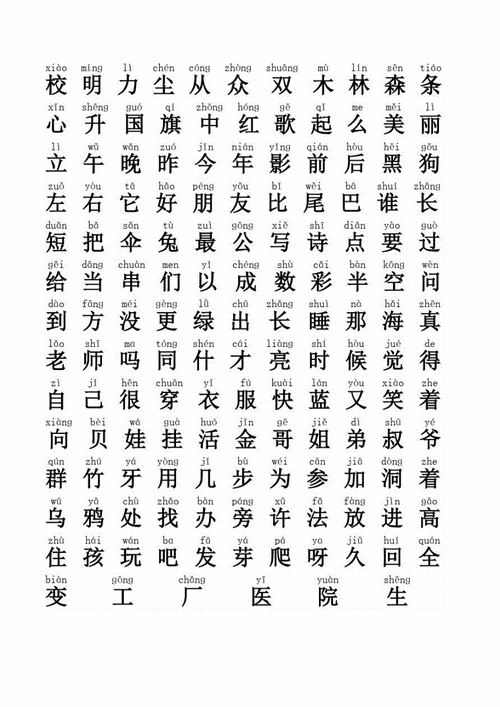 xiào míng lì chén cóng zhòng shuāng mù lín sēn tiáo
校 明 力 尘 从 众 双 木 林 森 条
xīn shēng guó qí zhōng hóng gē qǐ me měi lì
心 升 国 旗 中 红 歌 起 么 美 丽
lì wǔ wǎn zuó jīn nián yǐng qián hòu hēi gǒu
立 午 晚 昨 今 年 影 前 后 黑 狗
zuǒ yòu tā hǎo péng yǒu bǐ wěi bā shuí zhǎng
左 右 它 好 朋 友 比 尾 巴 谁 长
duǎn bǎ sǎn tù zuì gōng xiě shī diǎn yào guò
短 把 伞 兔 最 公 写 诗 点 要 过
gěi dāng chuàn men yǐ chéng shù cǎi bàn kōng wèn
给 当 串 们 以 成 数 彩 半 空 问
dào fāng méi gèng lǜ chū zhǎng shuì nà hǎi zhēn
到 方 没 更 绿 出 长 睡 那 海 真
lǎo shī ma tóng shén cái liàng shí hòu jué de
老 师 吗 同 什 才 亮 时 候 觉 得
zì jǐ hěn chuān yī fú kuài lán yòu xiào zhe
自 己 很 穿 衣 服 快 蓝 又 笑 着
xiàng bèi wá guà huó jīn gē jiě dì shū yé
向 贝 娃 挂 活 金 哥 姐 弟 叔 爷
qún zhú yá yòng jǐ bù wéi cān jiā dòng zhe
群 竹 牙 用 几 步 为 参 加 洞 着
wū yā chù zhǎo bàn páng xǔ fǎ fàng jìn gāo
乌 鸦 处 找 办 旁 许 法 放 进 高
zhù hái wán ba fā yá pá ya jiǔ huí quán
住 孩 玩 吧 发 芽 爬 呀 久 回 全
biàn gōng chǎng yī yuàn shēng
变 工 厂 医 院 生